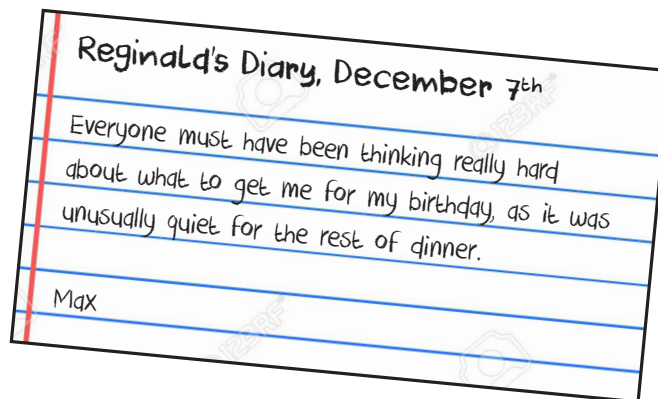 Reginald's Diary, December 7th
Everyone must have been thinking really hard
about what to get me for my birthday, as it was
unusually quiet for the rest of dinner.
Max
123RF
123RF
123RF